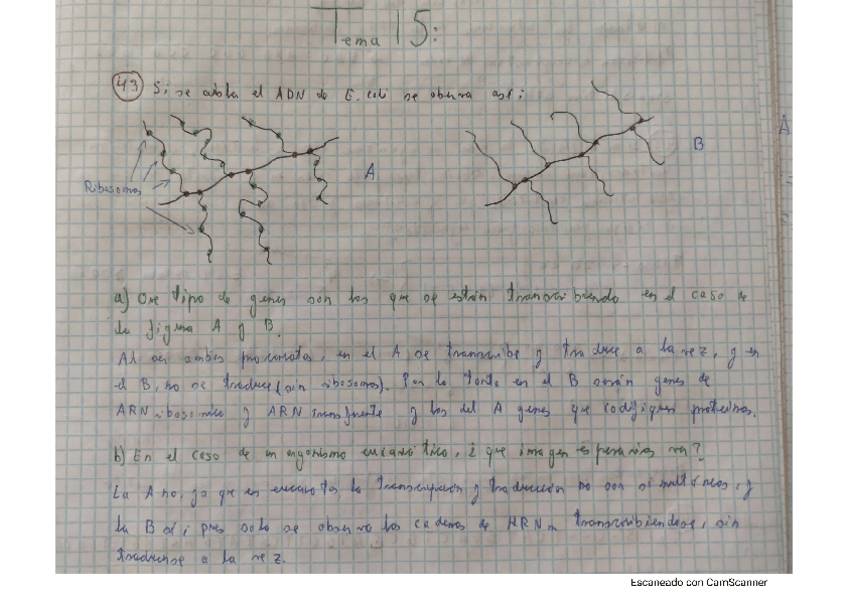 Tema 15:
43 Si se aisla el ADN de E. coli se observa así:
Ribosomas
A
B
a) Que tipo de genes son los que se están transcribiendo en el caso de
la figura A y B.
Al ser ambos procariotas, en el A se transcribe y traduce a la vez, y en
el B, no se traduce (sin ribosomas). Por lo tanto en el B serán genes de
ARN ribosomico y ARN transferente y los del A genes que codifiquen proteinas.
b) En el caso de un organismo eucariótico, ¿que imagen esperarias ver?
La A no, ya que en eucariotas la transcripción y traducción no son simultáneas, y
la B sí, pues solo se observa las cadenas de ARNm transcribiendose, sin
traducirse a la vez.
Escaneado con CamScanner